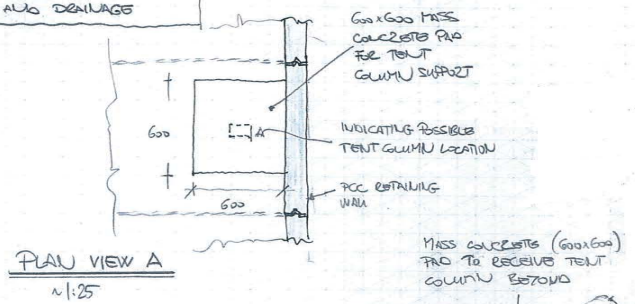 AND DRAINAGE
600x600 MASS
CONCRETE PAD
FOR TENT
COLUMN SUPPORT
600
INDICATING POSSIBLE
TENT COLUMN LOCATION
PCC RETAINING
WALL
600
PLAN VIEW A
~1:25
MASS CONCRETE (600x600)
PAD TO RECEIVE TENT
COLUMN BEYOND